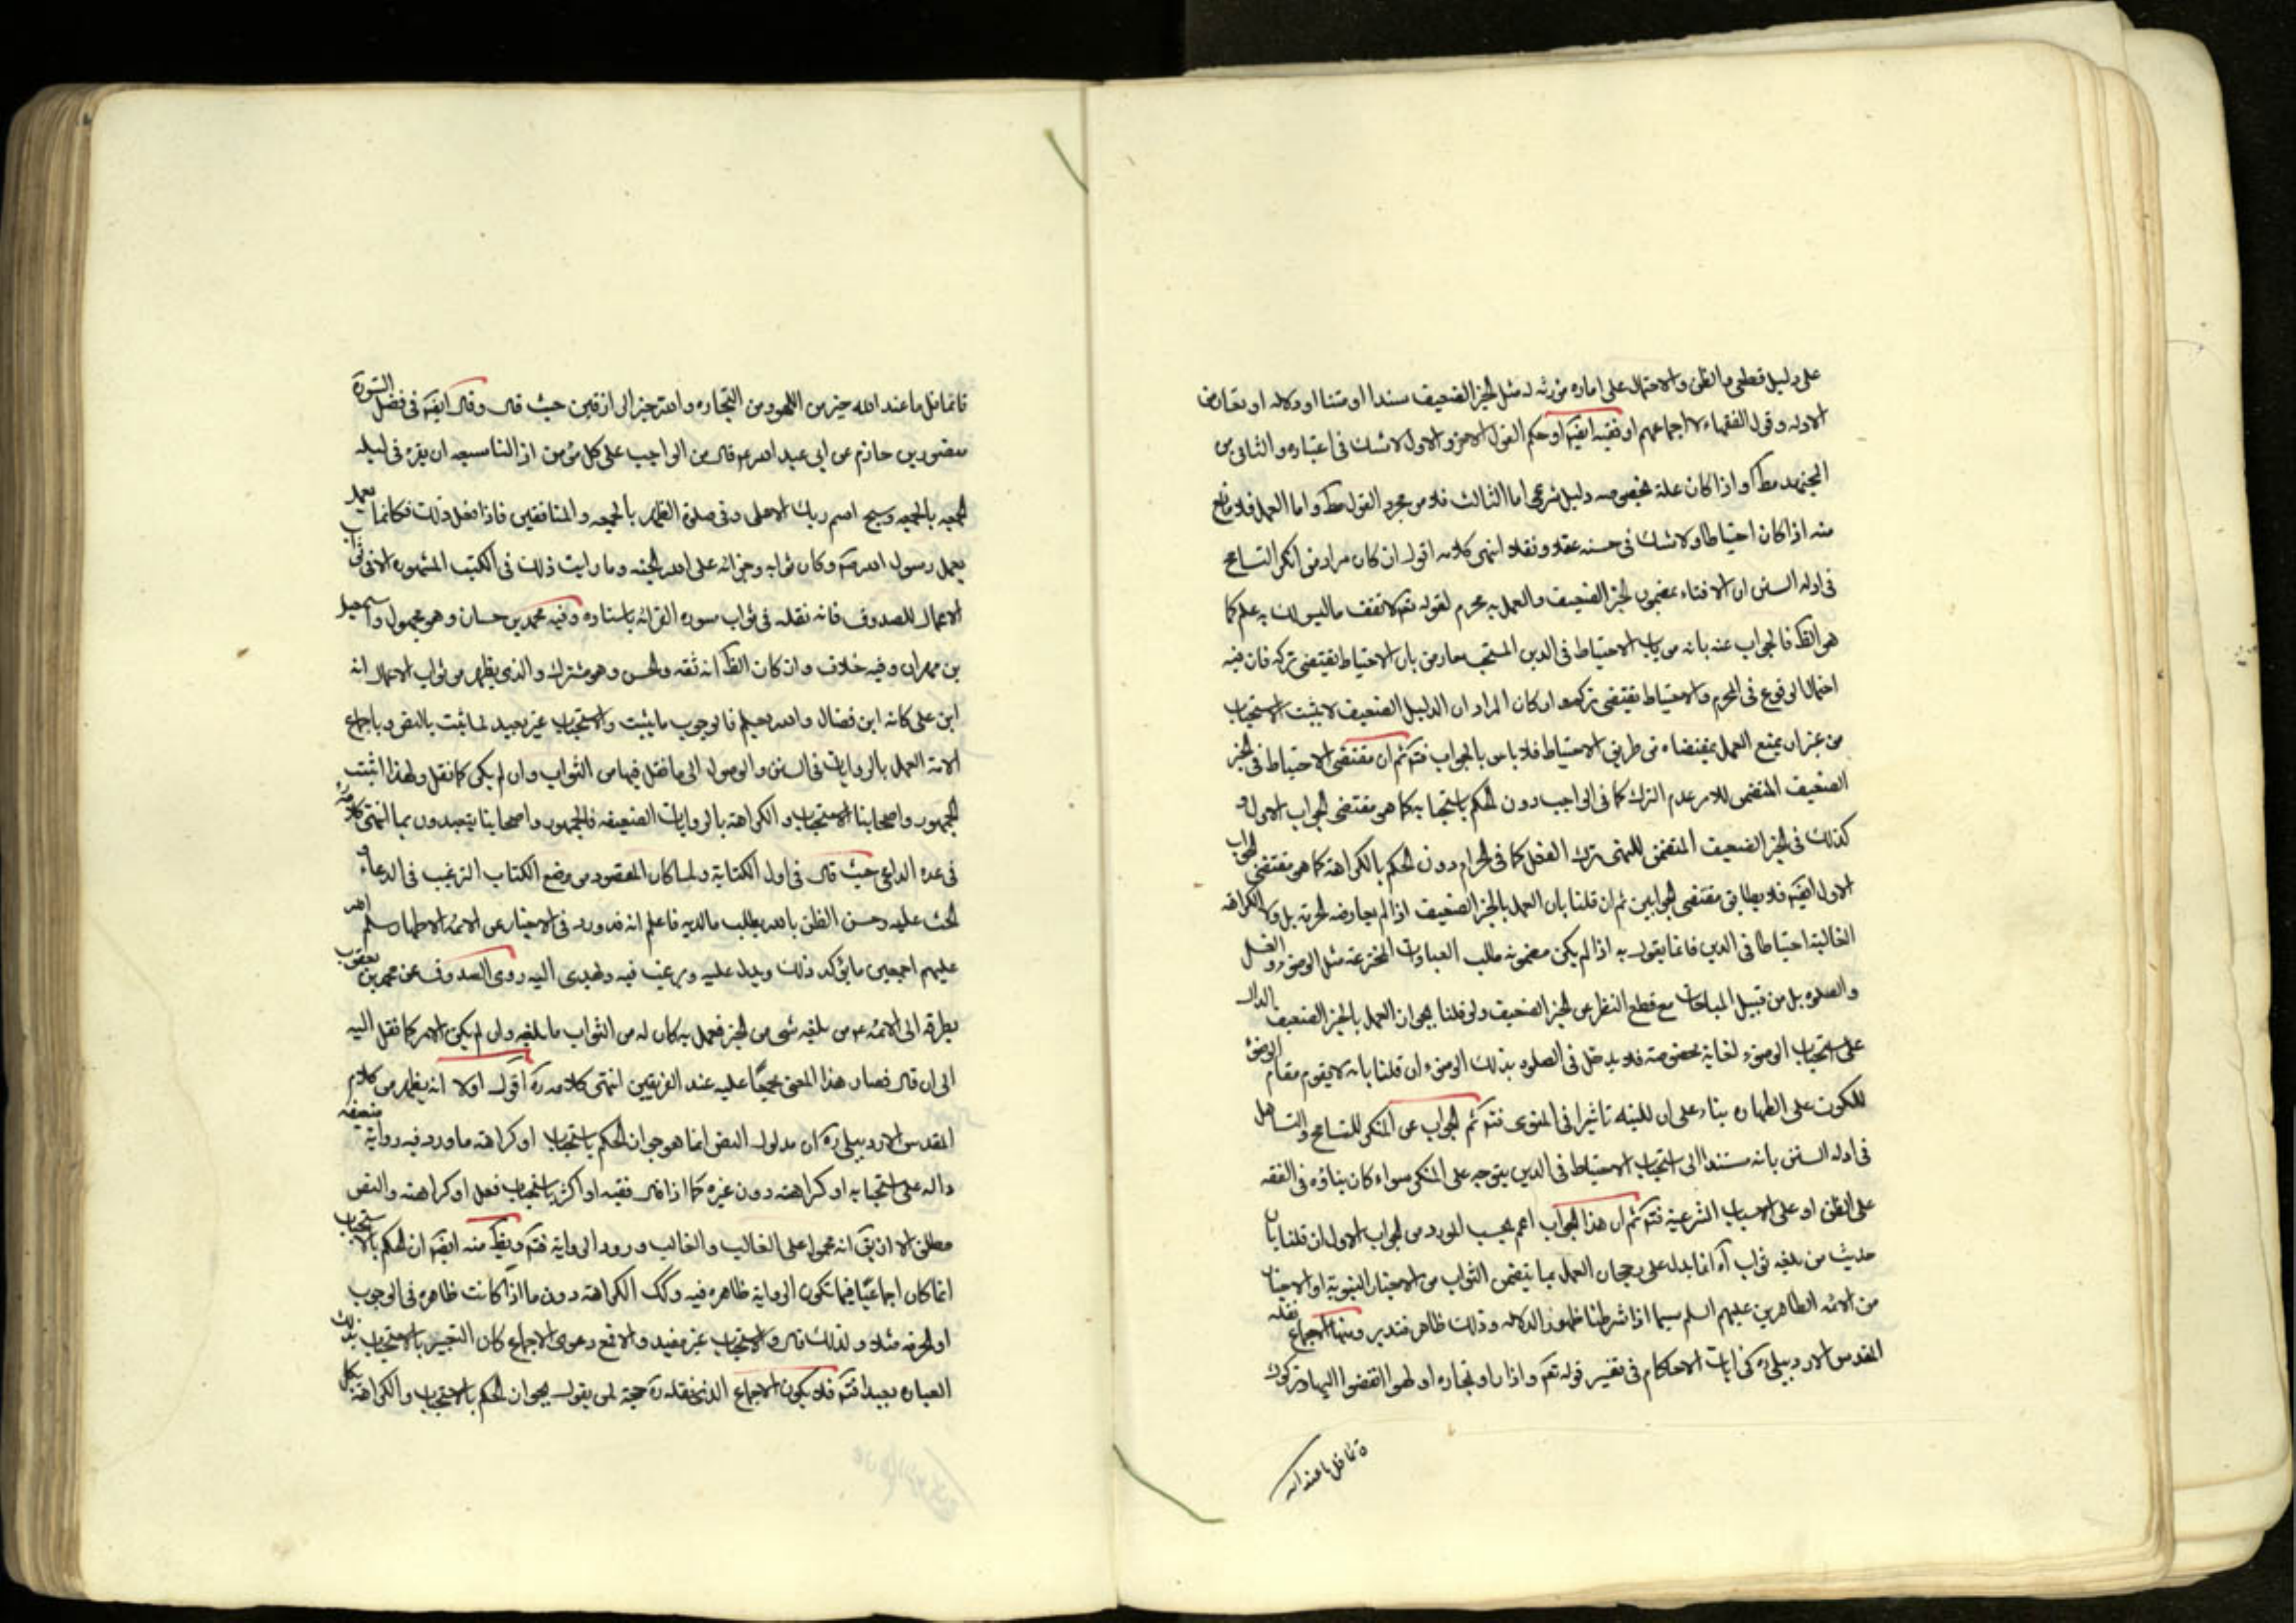 على دليل قطعى والظن والاحتمال على اماره مورثه له مثل الخبر الضعيف سندا او متنا او دلاله او تعارض
الادله وقول الفقهاء لا اجماعهم او فقيه ايضَم او حكم العقل الاخر والاول لا شك فى اعتباره والثانى من
المجتهد مط واذا كان علة بخصوصه دليل شرعى اما الثالث فلا من مجرد القول مط واما العمل فلا مانع
منه اذا كان احتياطا ولا شك فى حسنه عقلا ونقلا انتهى كلامه اقول ان كان مراد من انكر التسامح
فى ادله السنن ان الافتاء بمضمون الخبر الضعيف والعمل به محرم لقوله تعم لا تقف ما ليس لك به علم كما
هو الظ فالجواب عنه بانه من باب الاحتياط فى الدين المستحب معارض بان الاحتياط يقتضى تركه فان فيه
احتمال الوقوع فى المحرم والاحتياط يقتضى تركه ولو كان المراد ان الدليل الضعيف لا يثبت الاستحباب
من غير ان يمنع العمل بمقتضاه من طريق الاحتياط فلا باس بالجواب فتم ثم ان مقتضى الاحتياط فى الخبر
الضعيف المتضمن للامر عدم الترك كما فى الواجب دون الحكم باستحبابه كما هو مقتضى الجواب الاول و
كذلك فى الخبر الضعيف المتضمن للنهى ترك الفعل كما فى الحرام دون الحكم بالكراهة كما هو مقتضى الجواب
الاول ايضَم فلا يطابق مقتضى الجوابين ثم ان قلنا بان العمل بالخبر الضعيف اذا لم يعارضه الحرمة بل ولا الكراهة
الغالبة احتياطا فى الدين فانما يقول به اذا لم يكن مضمونه طلب العبادات المخترعة مثل الوضوء والغسل
والصلوه بل من قبيل المباحات مع قطع النظر عن الخبر الضعيف ولو قلنا بجواز العمل بالخبر الضعيف الدال
على استحباب الوضوء لغاية مخصوصة فلا يدخل فى الصلوه بذلك الوضوء ان قلنا بانه لا يقوم مقام الوضوء
للكون على الطهاره بناء على ان للنيه تاثيرا فى المنوى فتم ثم الجواب عن المنكر للتسامح والتساهل
فى ادله السنن بانه مستندا الى استحباب الاحتياط فى الدين يتوجه على المنكر سواء كان بناؤه فى الفقه
على الظن او على الاسباب الشرعية فتم ثم ان هذا الجواب اعم بحسب المورد من الجواب الاول ان قلنا بان
حديث من بلغه ثواب اه انما يدل على رجحان العمل بما يتضمن الثواب من الاخبار النبوية او الاخبار
من الائمه الطاهرين عليهم السلم سيما اذا شرطنا ظهور الدلاله وذلك ظاهر فتدبر ومنها الاجماع نقله
المقدس الاردبيلى ره فى ايات الاحكام فى تفسير قوله تعم واذا راو تجاره او لهوا انفضوا اليها وتركوك
ة قائما قل ما عند الله
قائما قل ما عند الله خير من اللهو ومن التجاره والله خير الرازقين حيث قال وقال ايضَم فى فضل السورة
منصور بن حازم عن ابى عبد الله ع قال من الواجب على كل مؤمن اذا كان لنا شيعه ان يقرء فى ليله
الجمعه بالجمعه وسبح اسم ربك الاعلى وفى صلوة الظهر بالجمعه والمنافقين فاذا فعل ذلك فكانما يعمل
بعمل رسول الله ص وكان ثوابه وجزائه على الله الجنه وما رايت ذلك فى الكتب المشهوره الا فى ثواب
الاعمال للصدوق فانه نقله فى ثواب سوره القرائه باسناده وفيه محمد بن حسان وهو مجهول واسمعيل
بن مهران وفيه خلاف وان كان الظ انه ثقه والحسن وهو مشترك والذى يظهر من ثواب الاعمال انه
ابن على كانه ابن فضال والله يعلم فالوجوب ما يثبت والاستحباب غير بعيد لما ثبت بالنص وباجماع
الامة العمل بالروايات فى السنن والوصول الى ما نقل فيها من الثواب وان لم يكن كما نقل ولهذا اثبت
الجمهور واصحابنا الاستحباب والكراهة بالروايات الضعيفه فالجمهور واصحابنا يتعبدون بها انتهى كلامه
فى عدة الداعى حيث قال فى اول الكتابة ولما كان المقصود من وضع الكتاب الترغيب فى الدعاء و
الحث عليه وحسن الظن بالله بطلب ما لديه فاعلم انه قد ورد فى الاخبار عن الائمه الاطهار سلم الله
عليهم اجمعين ما يؤكد ذلك ويدل عليه ويرغب فيه ويهدى اليه روى الصدوق عن محمد بن يعقوب
بطرقه الى الائمه ع من بلغه شى من الخير فعمل به كان له من الثواب ما بلغه وان لم يكن الامر كما نقل اليه
الى ان قال فصار هذا المعنى مجمعا عليه عند الفريقين انتهى كلامه ره اقول اولا انه يظهر من كلام
المقدس الاردبيلى ره ان مدلول النص انما هو جواز الحكم باستحباب او كراهة ما ورد فيه رواية ضعيفه
داله على استحبابه او كراهته دون غيره كما اذا قال فقيه او اكثر باستحباب فعل او كراهته والنص
مطلق الا ان يق انه محمول على الغالب والغالب ورود الرواية فتم ويظ منه ايضَم ان الحكم بالاستحباب
انما كان اجماعيا فيما تكون الرواية ظاهره فيه وكك الكراهة دون ما اذا كانت ظاهره فى الوجوب
او الحرمه مثلا ولذلك قال والاستحباب غير مفيد والا فمع دعوى الاجماع كان التعبير بالاستحباب بذلك
العباره بعيدا فتم فلا يكون الاجماع الذى نقله ره حجة لمن يقول بجواز الحكم بالاستحباب والكراهة بكل